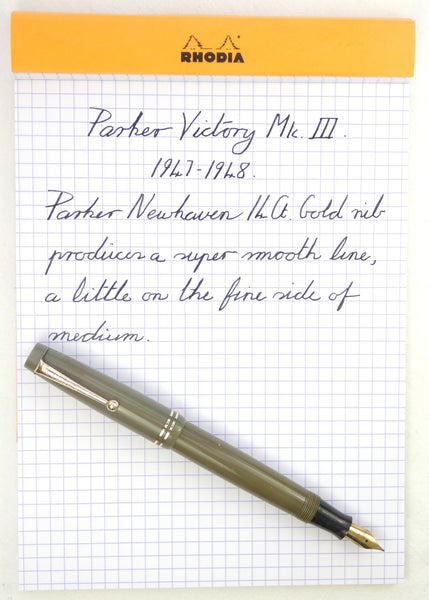 RHODIA
Parker Victory Mk. III.
1947-1948.
Parker Newhaven 14 Ct. Gold nib
produces a super smooth line,
a little on the fine side of
medium.